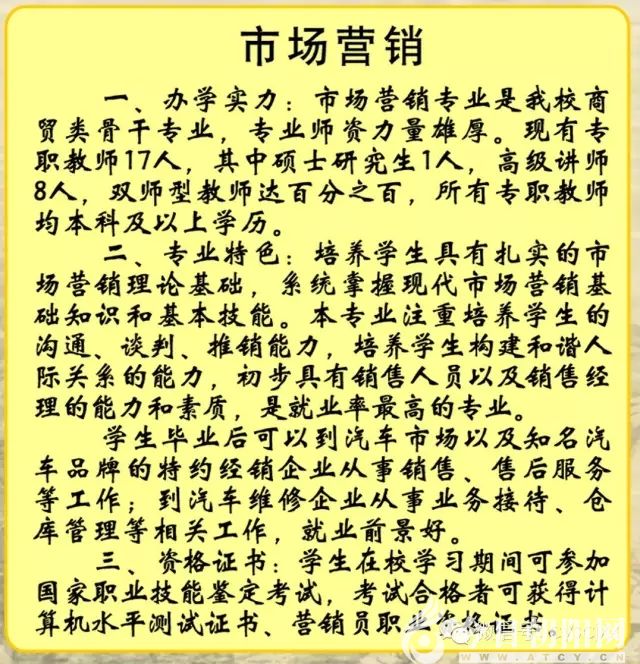 市场营销
一、办学实力：市场营销专业是我校商
贸类骨干专业，专业师资力量雄厚。现有专
职教师17人，其中硕士研究生1人，高级讲师
8人，双师型教师达百分之百，所有专职教师
均本科及以上学历。
二、专业特色：培养学生具有扎实的市
场营销理论基础，系统掌握现代市场营销基
础知识和基本技能。本专业注重培养学生的
沟通、谈判、推销能力，培养学生构建和谐人
际关系的能力，初步具有销售人员以及销售经
理的能力和素质，是就业率最高的专业。
学生毕业后可以到汽车市场以及知名汽
车品牌的特约经销企业从事销售、售后服务
等工作；到汽车维修企业从事业务接待、仓
库管理等相关工作，就业前景好。
三、资格证书：学生在校学习期间可参加
国家职业技能鉴定考试，考试合格者可获得计
算机水平测试证书、营销员职业资格证书。
WWW.ATCY.CN